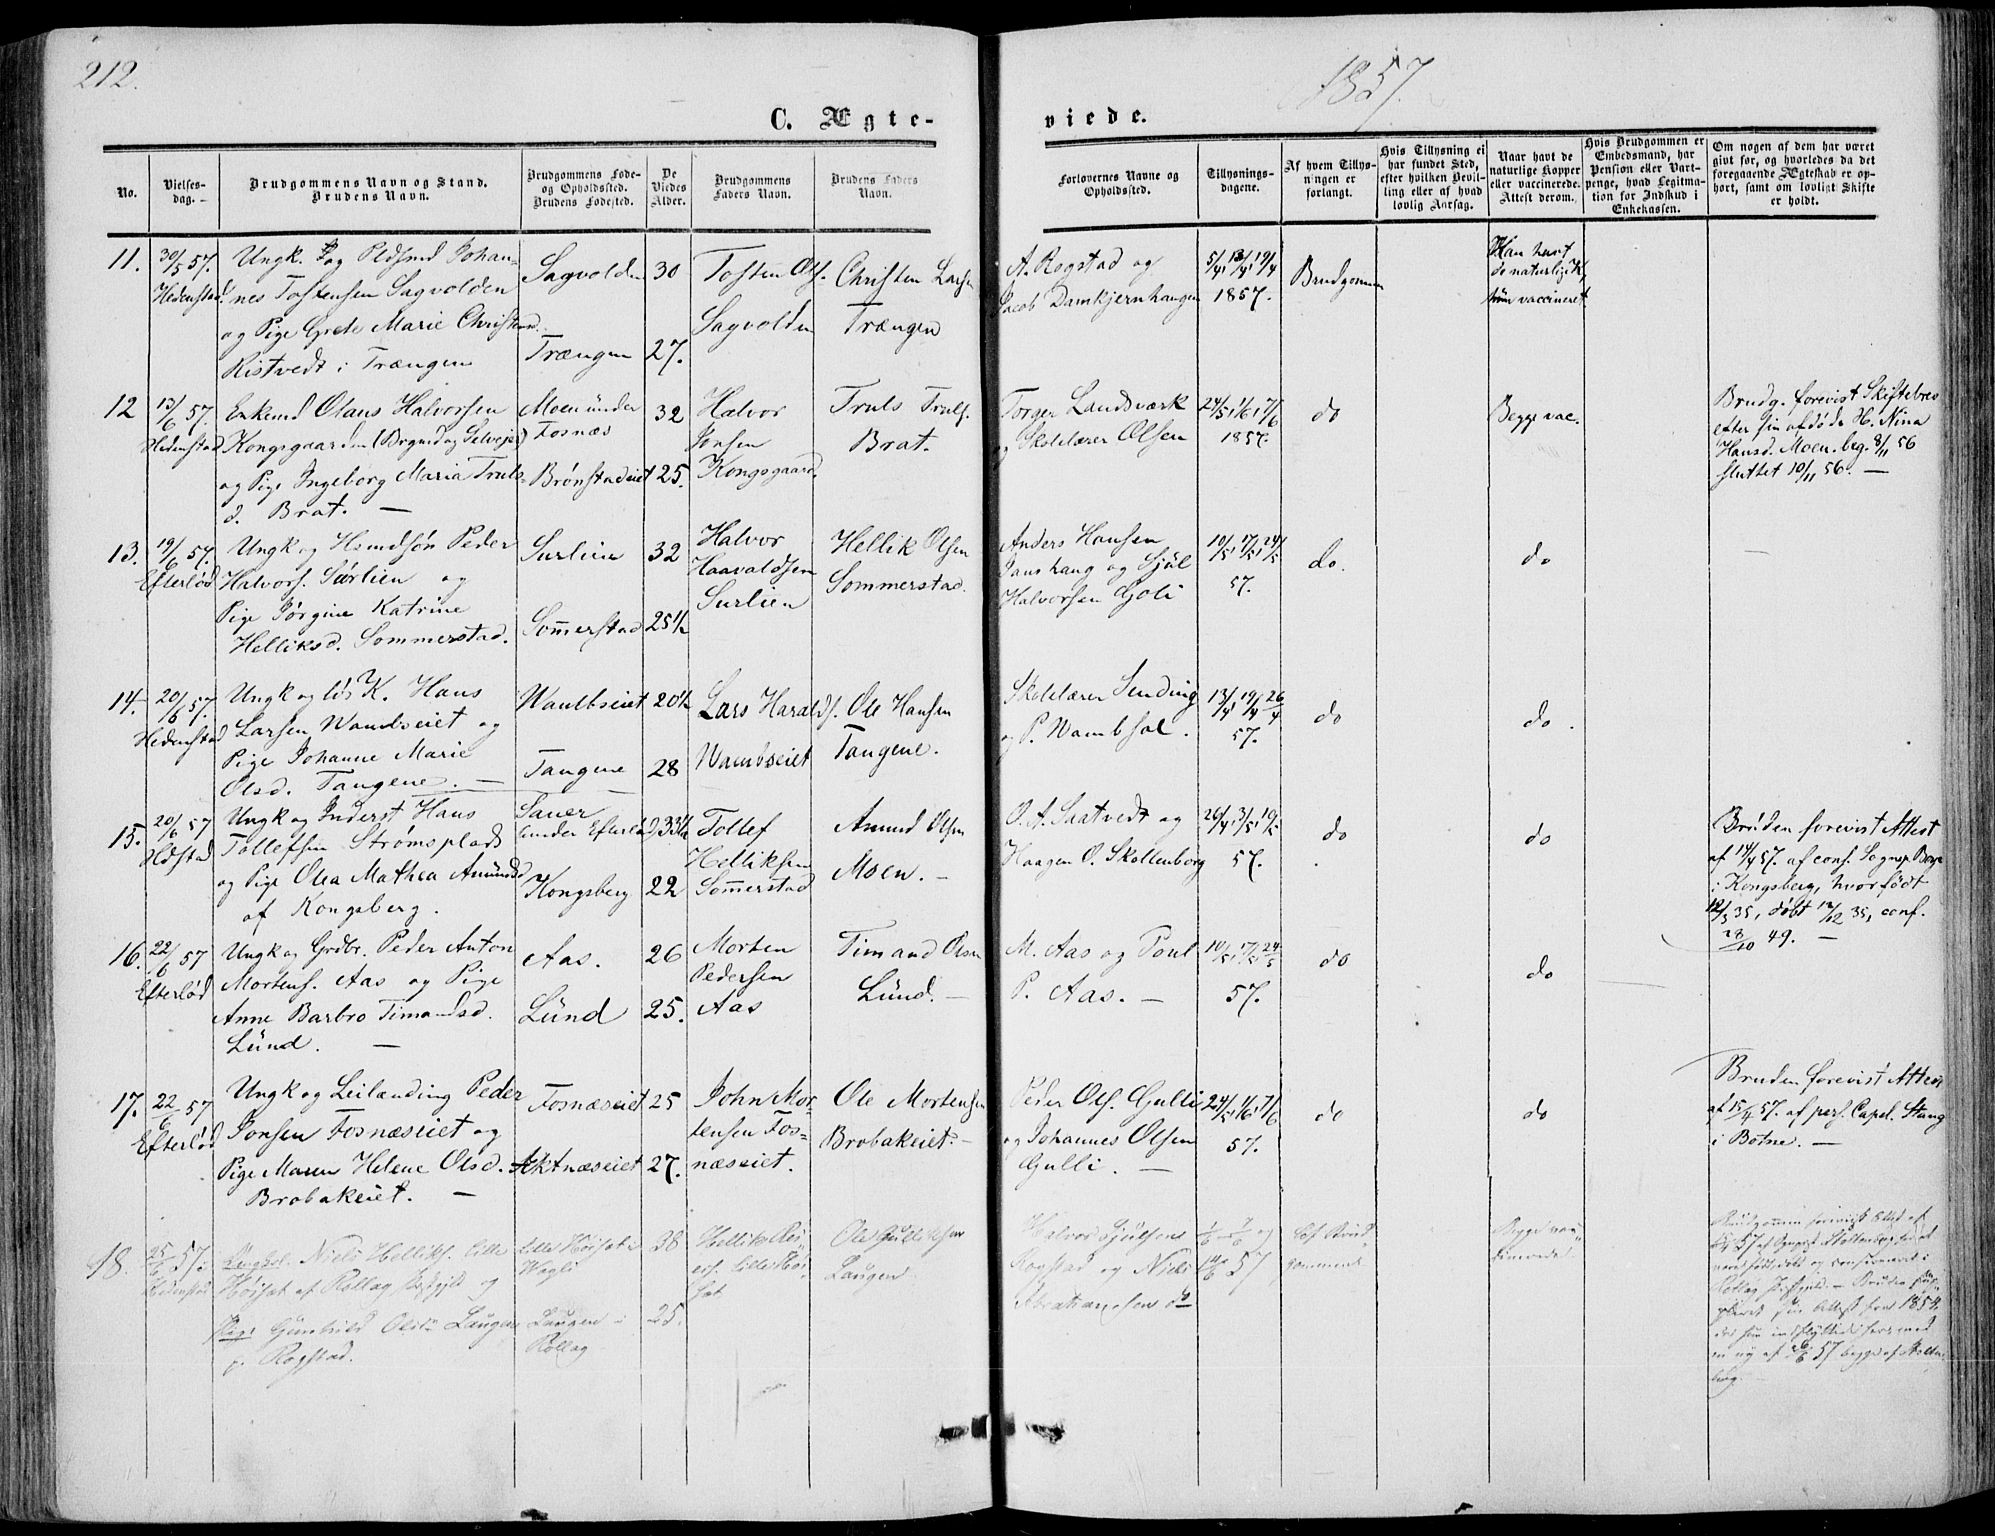 212.
1857.
C. Ægte-
viede.
No.
Vielses-
dag.
Brudgommens Navn og Stand.
Brudens Navn.
Brudgommens Føde-
og Opholdssted.
Brudens Fødested.
De
Viedes
Alder.
Brudgommens
Faders Navn.
Brudens Faders
Navn.
Forlovernes Navne og
Opholdssted.
Tillysnings-
dagene.
Af hvem Tillys-
ningen er
forlangt.
Hvis Tillysning ei
har fundet Sted,
efter hvilken Bevil-
ling eller af hvad
lovlig Aarsag.
Naar havt de
naturlige Kopper
eller vaccinerede.
Attest derom.
Hvis Brudgommen er
Embedsmand, har
Pension eller Vart-
penge, hvad Legitima-
tion for Indskud i
Enkekassen.
Om nogen af dem har været
gift før, og hvorledes da det
foregaaende Ægteskab er op-
hørt, samt om lovligt Skifte
er holdt.
11.
30/5 57.
Hedenstad
Ungk. og Pldsmd Johan-
nes Tostensen Sagvolden
og Pige Grete Marie Christensd.
Ristvedt i Trængen
Sagvolden
Trængen
30
27.
Tosten Ols.
Sagvolden
Christen Larsen
Trængen
A. Rogstad og
Jacob Damkjernhaugen
5/4, 13/4, 19/4
1857.
Brudgommen
Han havt
do naturlige K,
hün vaccineret
12
13/6 57.
Hedenstad
Enkemd Olaus Halvorsen
Kongsgaarden (Brgmd og Selvejer)
og Pige Ingeborg Maria Truls-
d. Brat. —
Moen ünder
Fosnæs
Brønstadeiet
32
25.
Halvor
Jonsen
Kongsgaard.
Truls Truls.
Brat.
Torger Landsværk
og Skolelærer Olsen
24/5, 1/6, 7/6
1857.
do
Begge vac.
Brudg. forevist Skiftebrev
efter sin afdøde H. Nina
Hansd. Moen. beg. 8/11 56
sluttet 10/11 56. —
13.
19/6 57.
Efterlød
Ungk og Hsmdsøn Peder
Halvors. Sürlien og
Pige Jørgine Katrine
Helliksd. Sommerstad.
Surlien
Som̄erstad
32
25½
Halvor
Haavaldsen
Surlien
Hellik Olsen
Sommerstad.
Anders Hansen
Janshaug og Sjül
Halvorsen Goli
10/5, 17/5, 24/5
57.
do.
do
14.
20/6 57.
Hedenstad
Ungk og løs K. Hans
Larsen Wambseiet og
Pige Johanne Marie
Olsd. Tangene. —
Wambseiet
Tangene
20½
28
Lars Haralds.
Wambseiet
Ole Hansen
Tangene.
Skolelærer Sending
og P. Wambsal.
13/4, 19/4, 26/4
57.
do
do.
15.
20/6 57
Hdstad
Ungk og Inderst Hans
Tollefsen Strømsplads
og Pige Olea Mathea Amündsd
af Kongsberg.
Sauer
(under Efterlød)
Kongsberg
33½
22
Tollef
Helliksen
Som̄erstad
Amund Olsen
Moen. -
O. A. Saatvedt og
Haagen O. Skollenborg
26/4, 3/5, 10/5
57.
do
do
Brüden forevist Attest
af 14/4 57. af conf. Sognep.
i Kongsberg, hvor født
12/3 35, døbt 12/12 35, conf.
28/10 49. —
16.
22/6 57
Efterlød
Ungk og Grdbr. Peder Anton
Mortens. Aas og Pige
Anne Barbro Timandsd.
Lünd. —
Aas.
Lünd
26
25.
Morten
Pedersen
Aas
Timand Olsen
Lünd. —
M. Aas og Poul
P. Aas. —
10/5, 17/5, 24/5
57.
do
do
17.
22/6 57
Efterlød
Ungk og Leilænding Peder
Jonsen Fosnæseiet og
Pige Maren Helene Olsd.
Brobakeiet. —
Fosnæseiet
Aktnæseiet
25
27.
John Mor-
tensen Fos-
næseiet.
Ole Mortensen
Brobakeiet. -
Peder Ols. Gulli
og Johannes Olsen
Gulli. —
24/5, 1/6, 7/6
57.
do
do
Bruden forevist Attest
af 15/4 57. af pers. Capel. Stang
i Botne. —
18.
25/6 57.
Hedenstad
Ungksl. Niels Helliks. Lille
Høisæt af Rollag Prestgjeld og
Pige Gunhild Olsd. Laugen
p. Rogstad.
Lille Høisæt i
Wegli
Laugen i
Rollag
38
25.
Ole Gulliksen
Laugen
Halvor Sjülsen
Rogstad og Niels
Abrahamsen do
1/6 7/6 og
14/6 57
af Brud
gommen
Begge vac-
cinerede